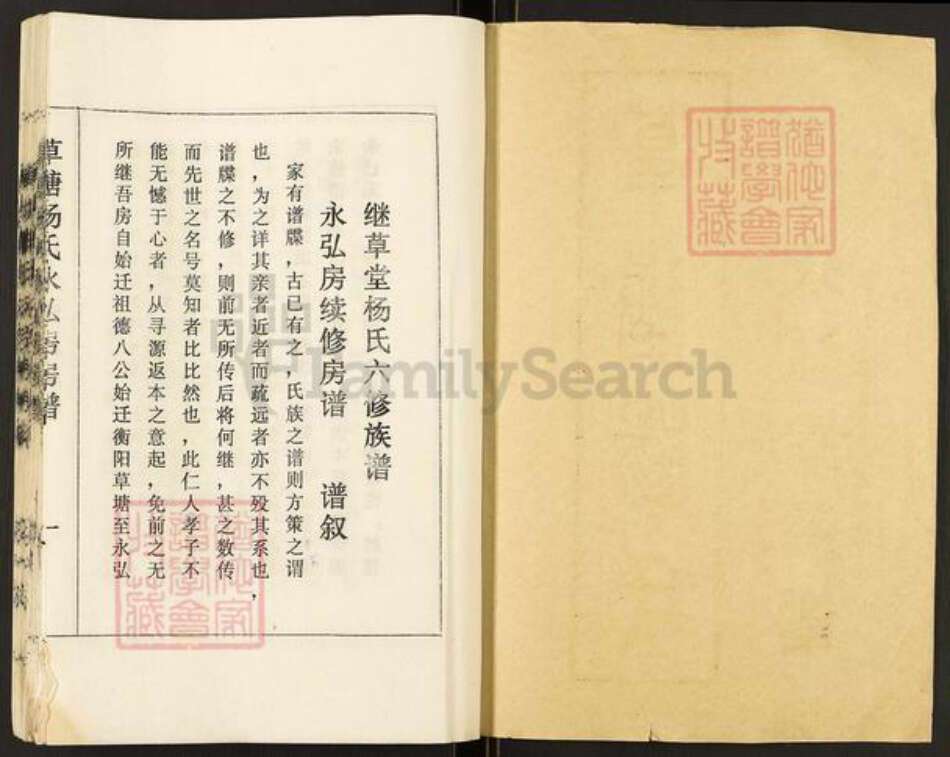 继草堂杨氏六修族谱
永弘房续修房谱 谱叙
家有谱牒，古已有之，氏族之谱则方策之谓
也，为之详其亲者近者而疏远者亦不殁其系也，
谱牒之不修，则前无所传后将何继，甚之数传
而先世之名号莫知者比比然也，此仁人孝子不
能无憾于心者，从寻源返本之意起，免前之无
所继吾房自始迁祖德八公始迁衡阳草塘至永弘
草塘杨氏永弘房房谱
一
FamilySearch
谱学会
收藏